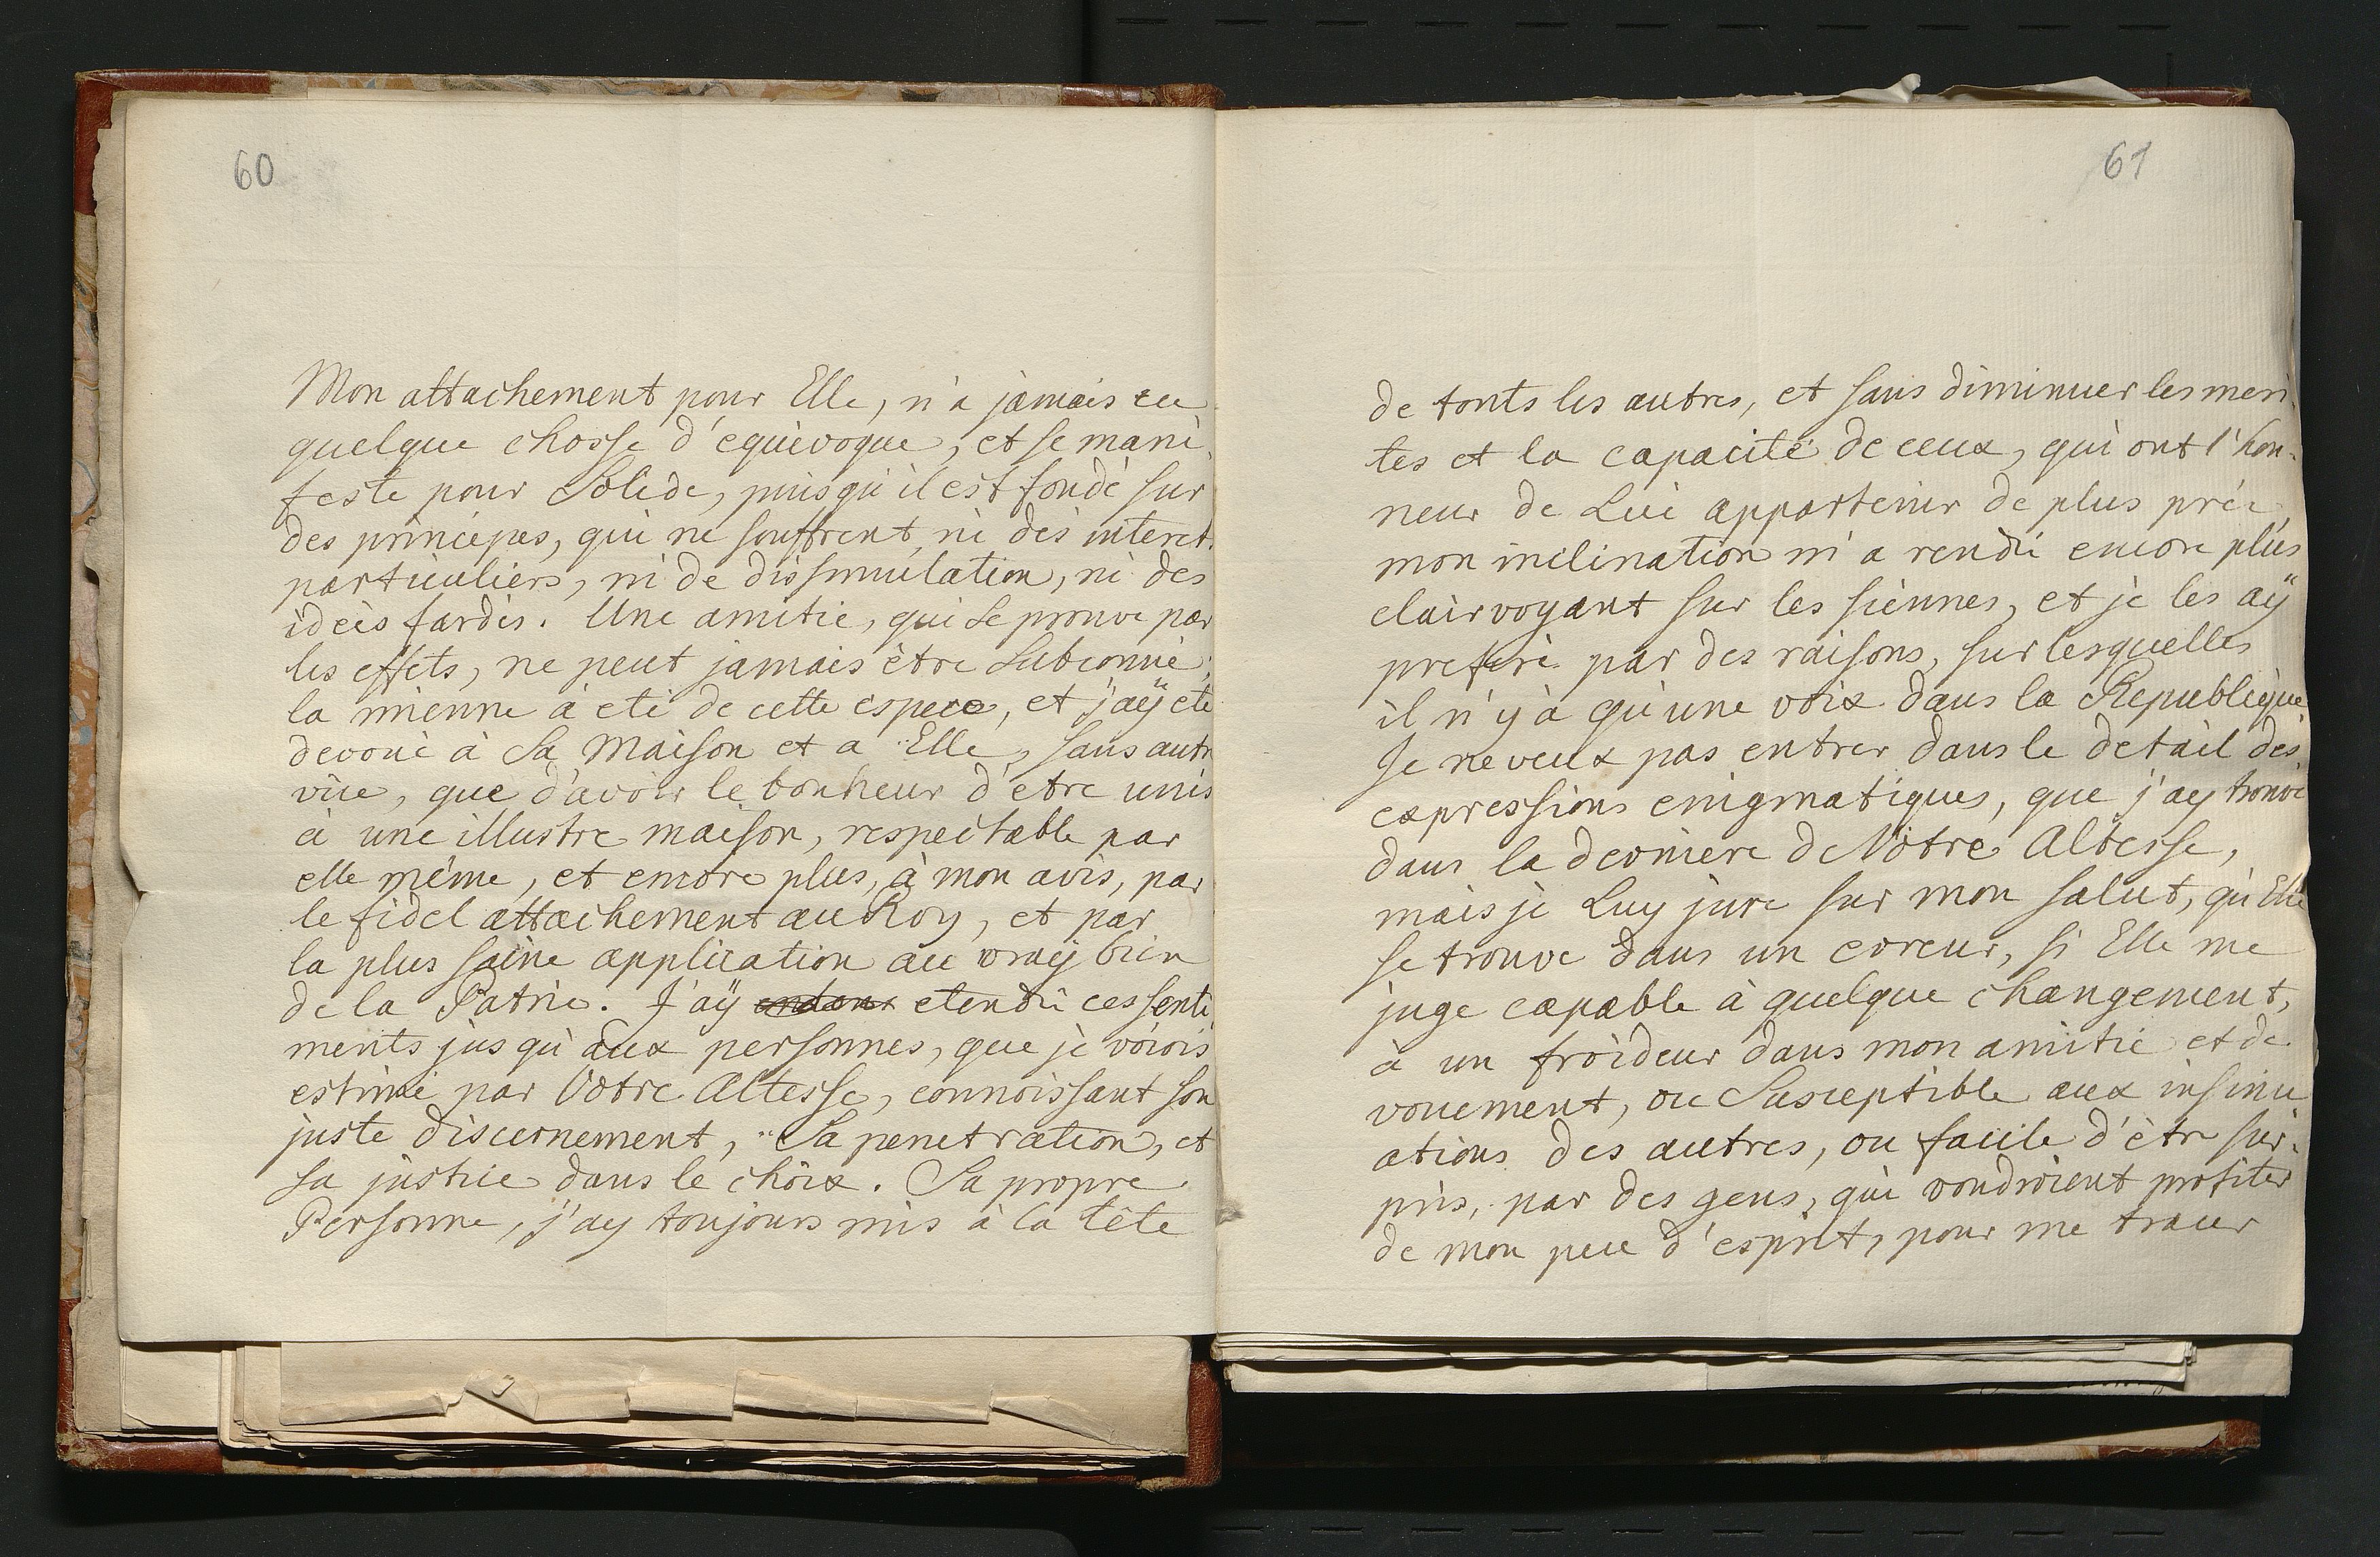 60
Mon attachement pour Elle, n'a jamais eu
quelque chosse d'equivoque, et se mani-
feste pour Solide, puisqu'il est fondé sur
des principes, qui ne souffrent, ni des interet.
particuliers, ni de dissimulation, ni des
ideès fardès. Une amitie, qui se prouve par
les effets, ne peut jamais ètre
la mienne à eté de cette espece, et j'aÿ eté
devoué à Sa Maison et a Elle, sans autr
vüe, que d'avoir le bonheur d'etre unis
à une illustre maison, respectable par
elle même, et encore plus, à mon avis, par
le fidel attachement au Roy, et par
la plus saine application au vraÿ bien
de la Patrie. J'aÿ etendü ces senti
ments jusqu'aux personnes, que je voiois
estimé par Votre Altesse, connoissant son
juste discernement, Sa penetration, et
sa justice dans le choix. Sa propre
Personne, j'ay toujours mis à la tête
61
de touts les autres, et sans diminuer les meri-
tes et la capacité de ceux, qui ont l'hon-
neur de Lui appartenir de plus près
mon inclination m'a rendü encore plus
clairvoyant sur les siennes, et je les aÿ
preferé par des raisons, sur lesquelles
il n'y à qu'une voix dans la Republique
Je ne veux pas entrer dans le detail des
expressions enigmatiques, que j'ay trouvé
dans la derniere de Vôtre Altesse,
mais je Luy jure sur mon salut, qu'Elle
se trouve dans un erreur, si Elle me
juge capable à quelque changement,
à un froideur dans mon amitié et de-
vouement, ou Susceptible aux insinu
ations des autres, ou facile d'ètre sur-
pris, par des gens, qui voudroient profiter
de mon peu d'esprit, pour me tracer